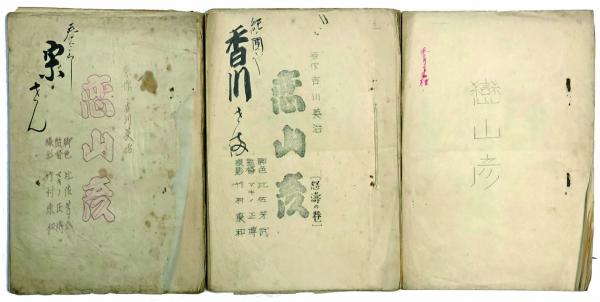 原作 吉川英治
恋山彦
脚色 比佐芳武
監督 マキノ正博
撮影 竹村康和
栗さん
原作 吉川英治
恋山彦
[怒濤の巻]
脚色 比佐芳武
監督 マキノ正博
撮影 竹村康和
紀の國や
香川さま
戀山彦